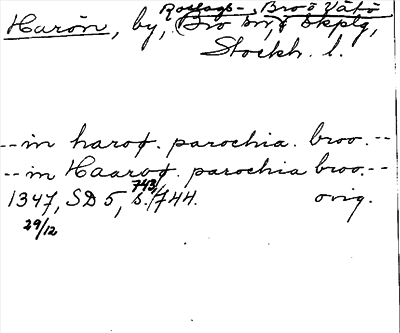 Roslags-, Bro o Vätö
Harön, by, Bro sn, o skplg,
Stockh. l.
--in haroø. parochia. broo.--
--in Haaroø. parochia broo.--
743/
1347, SD 5, s./744. orig.
29/12